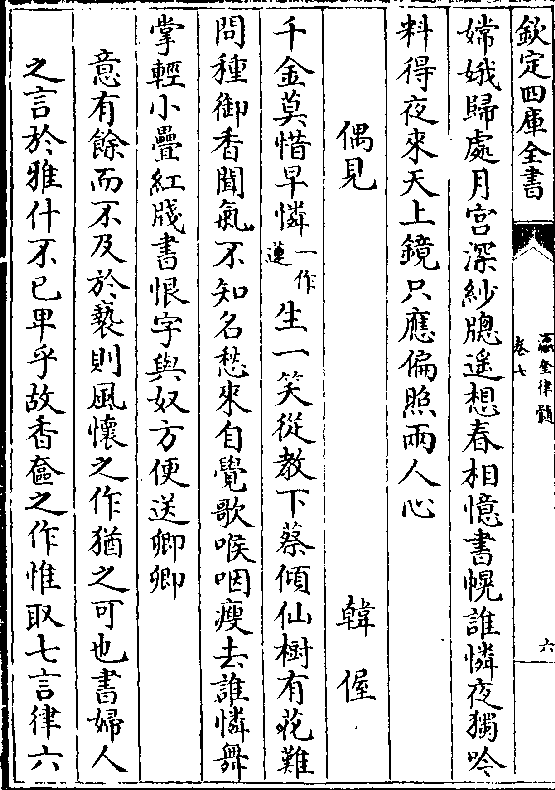 欽定四庫全書
瀛奎律髓
卷七
六
嫦娥歸處月宮深紗牕遥想春相憶書幌誰憐夜獨吟
料得夜來天上鏡只應偏照兩人心
偶見
韓偓
千金莫惜早憐一作蓮生一笑從教下蔡傾仙樹有花難
問種御香聞氣不知名愁來自覺歌喉咽瘦去誰憐舞
掌輕小疊紅牋書恨字與奴方便送卿卿
意有餘而不及於褻則風懷之作猶之可也書婦人
之言於雅什不已卑乎故香奩之作惟取七言律六